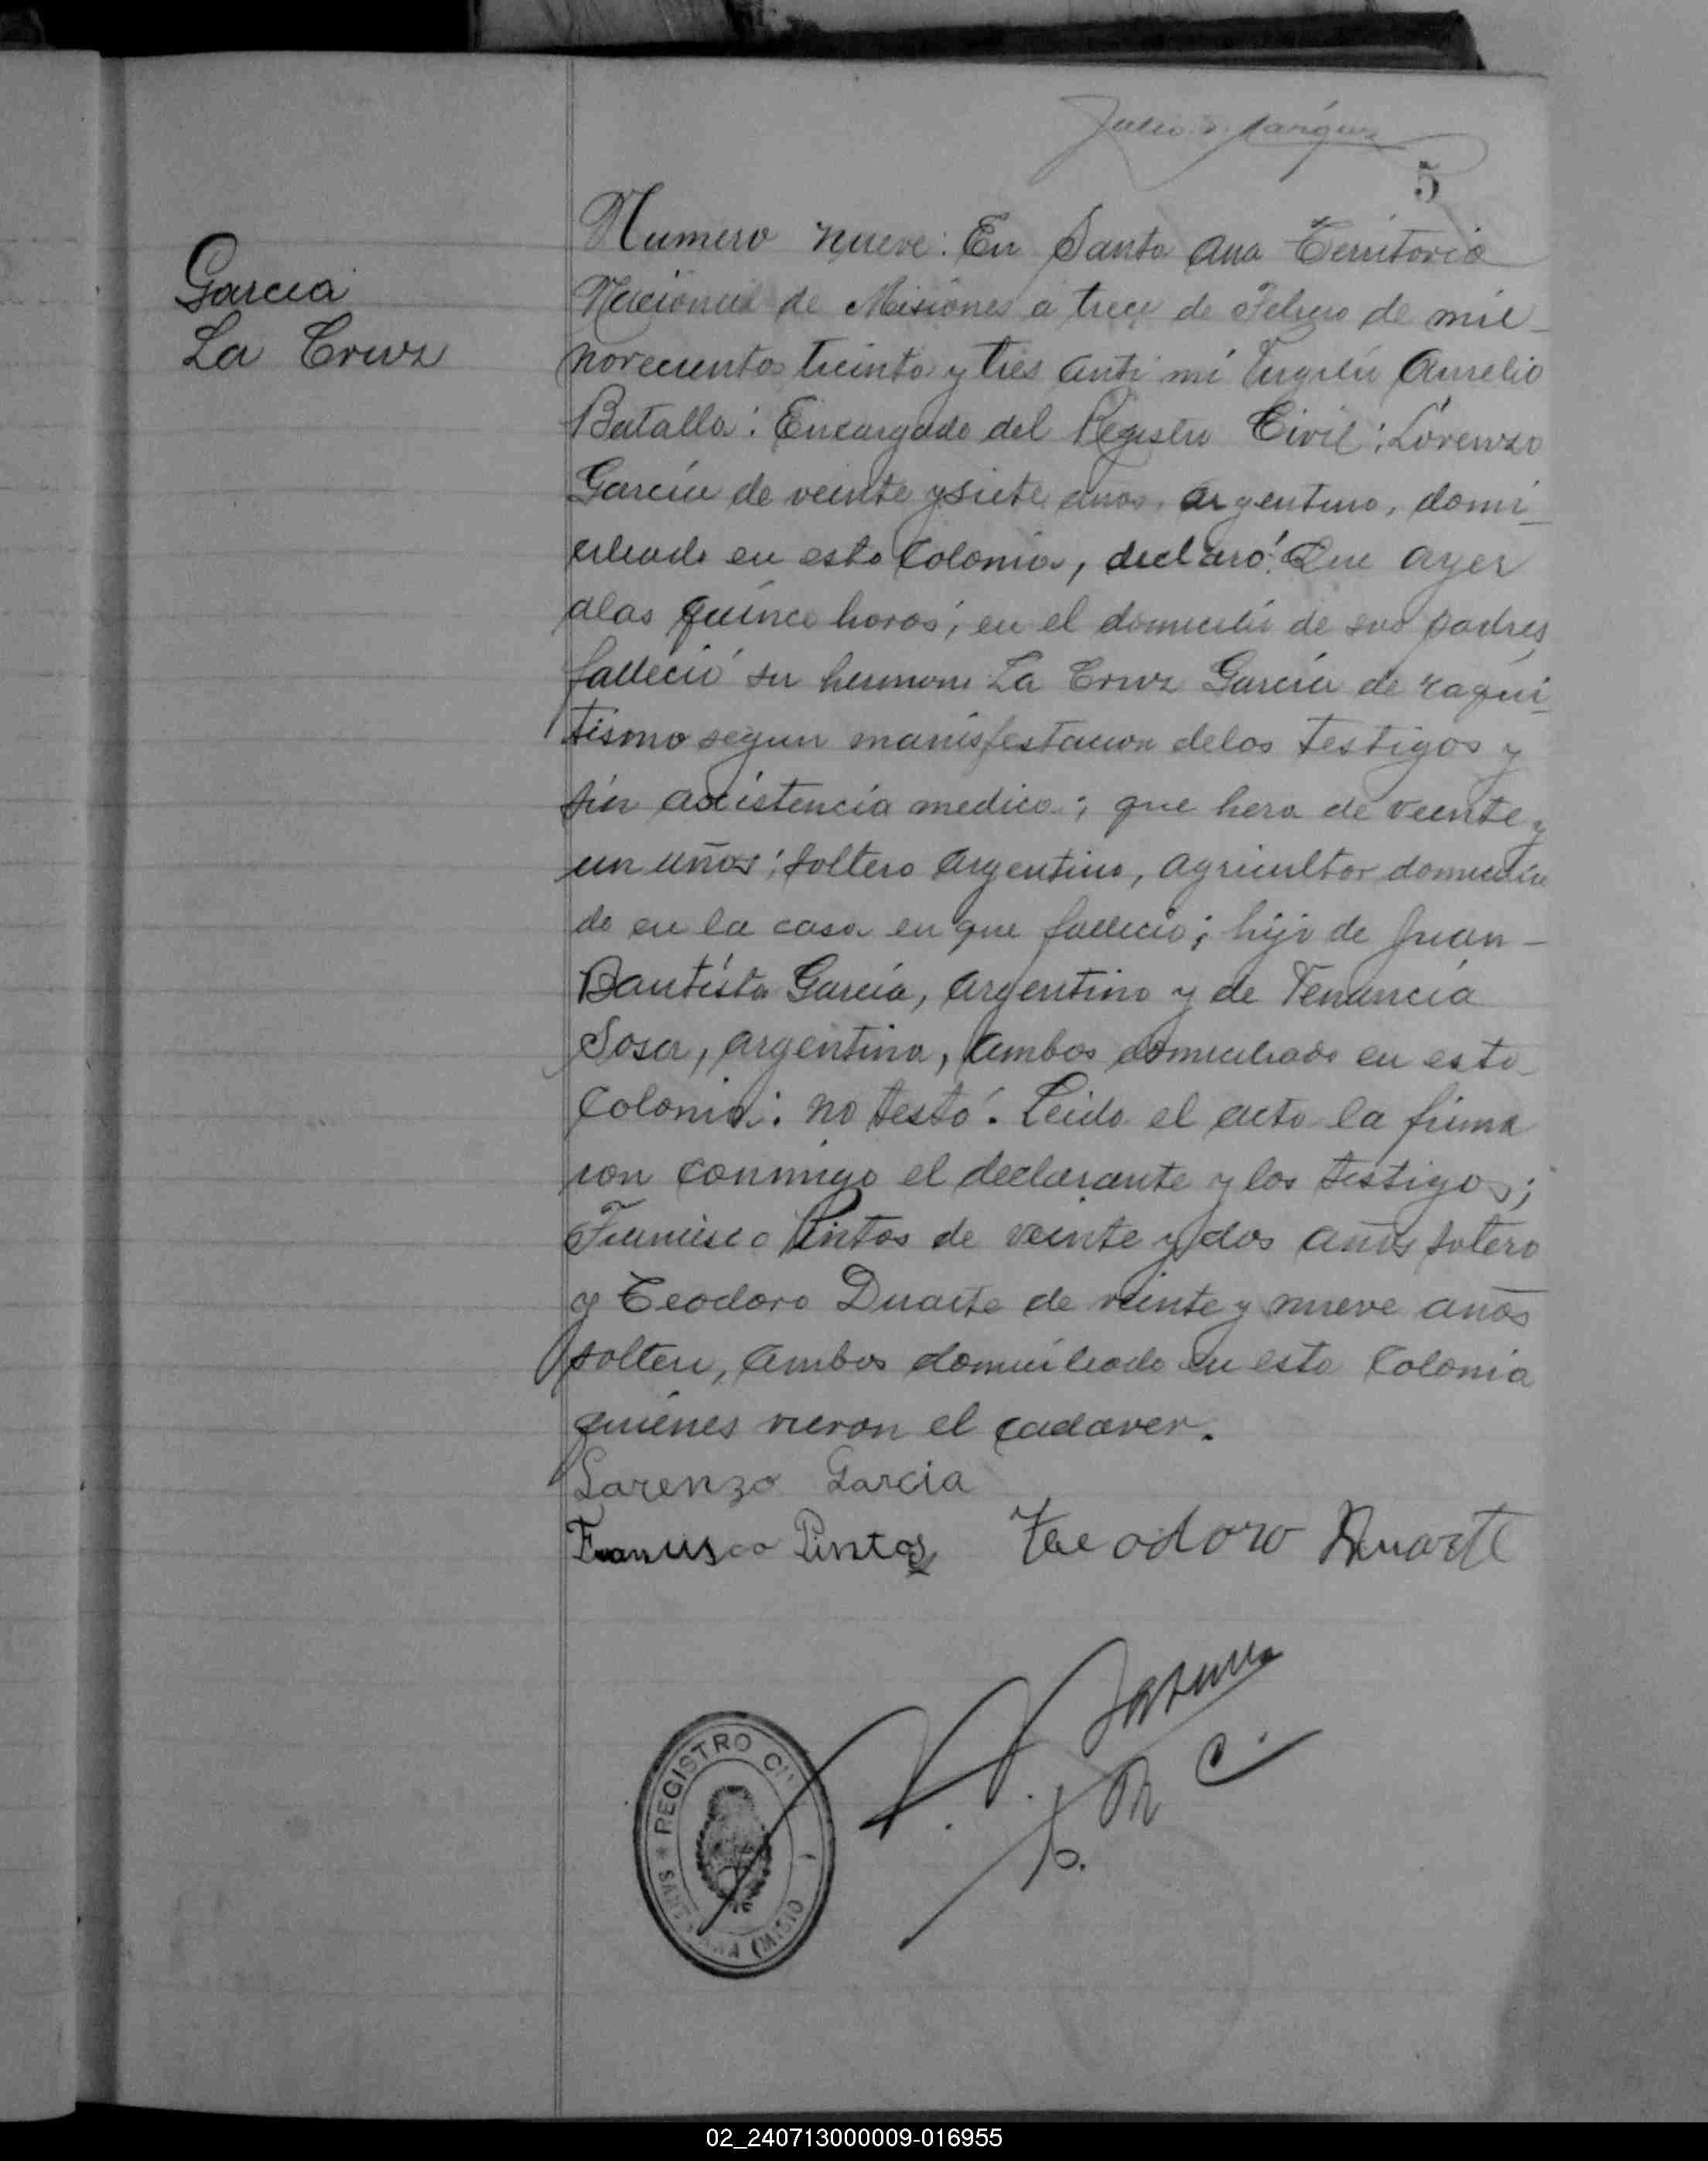 Julio S. Márquez
5
Garcia
La Cruz
Numero nueve: En Santa Ana Territorio
Nacional de Misiones a trece de Febrero de mil
novecientos treinta y tres ante mi Virgilio Aurelio
Batalla: Encargado del Registro Civil: Lorenzo
García de veinte y siete años, argentino, domi-
ciliado en esta Colonia, declaró: Que ayer
alas quince horas; en el domicilio de sus padres
falleció su hermano La Cruz García de raqui-
tismo segun manisfestacion delos testigos y
sin acistencia medica; que hera de veinte y
un años; soltero argentino, agricultor domicilia
do en la casa en que fallecio; hijo de Juan -
Bautista García, argentino y de Tenancia
Sosa, argentina, ambos domiciliado en esta
Colonia: no testó. Leido el acto la firma
ron conmigo el declarante y los testigos;
Francisco Pintos de veinte y dos años solero
y Teodoro Duarte de veinte y nueve años
soltero, ambos domiciliado en esta Colonia
quienes vieron el cadaver.
Lorenzo Garcia
Francisco Pintos Teodoro Duarte
REGISTRO CIVIL
SANTA ANA (MISIO
02_240713000009-016955